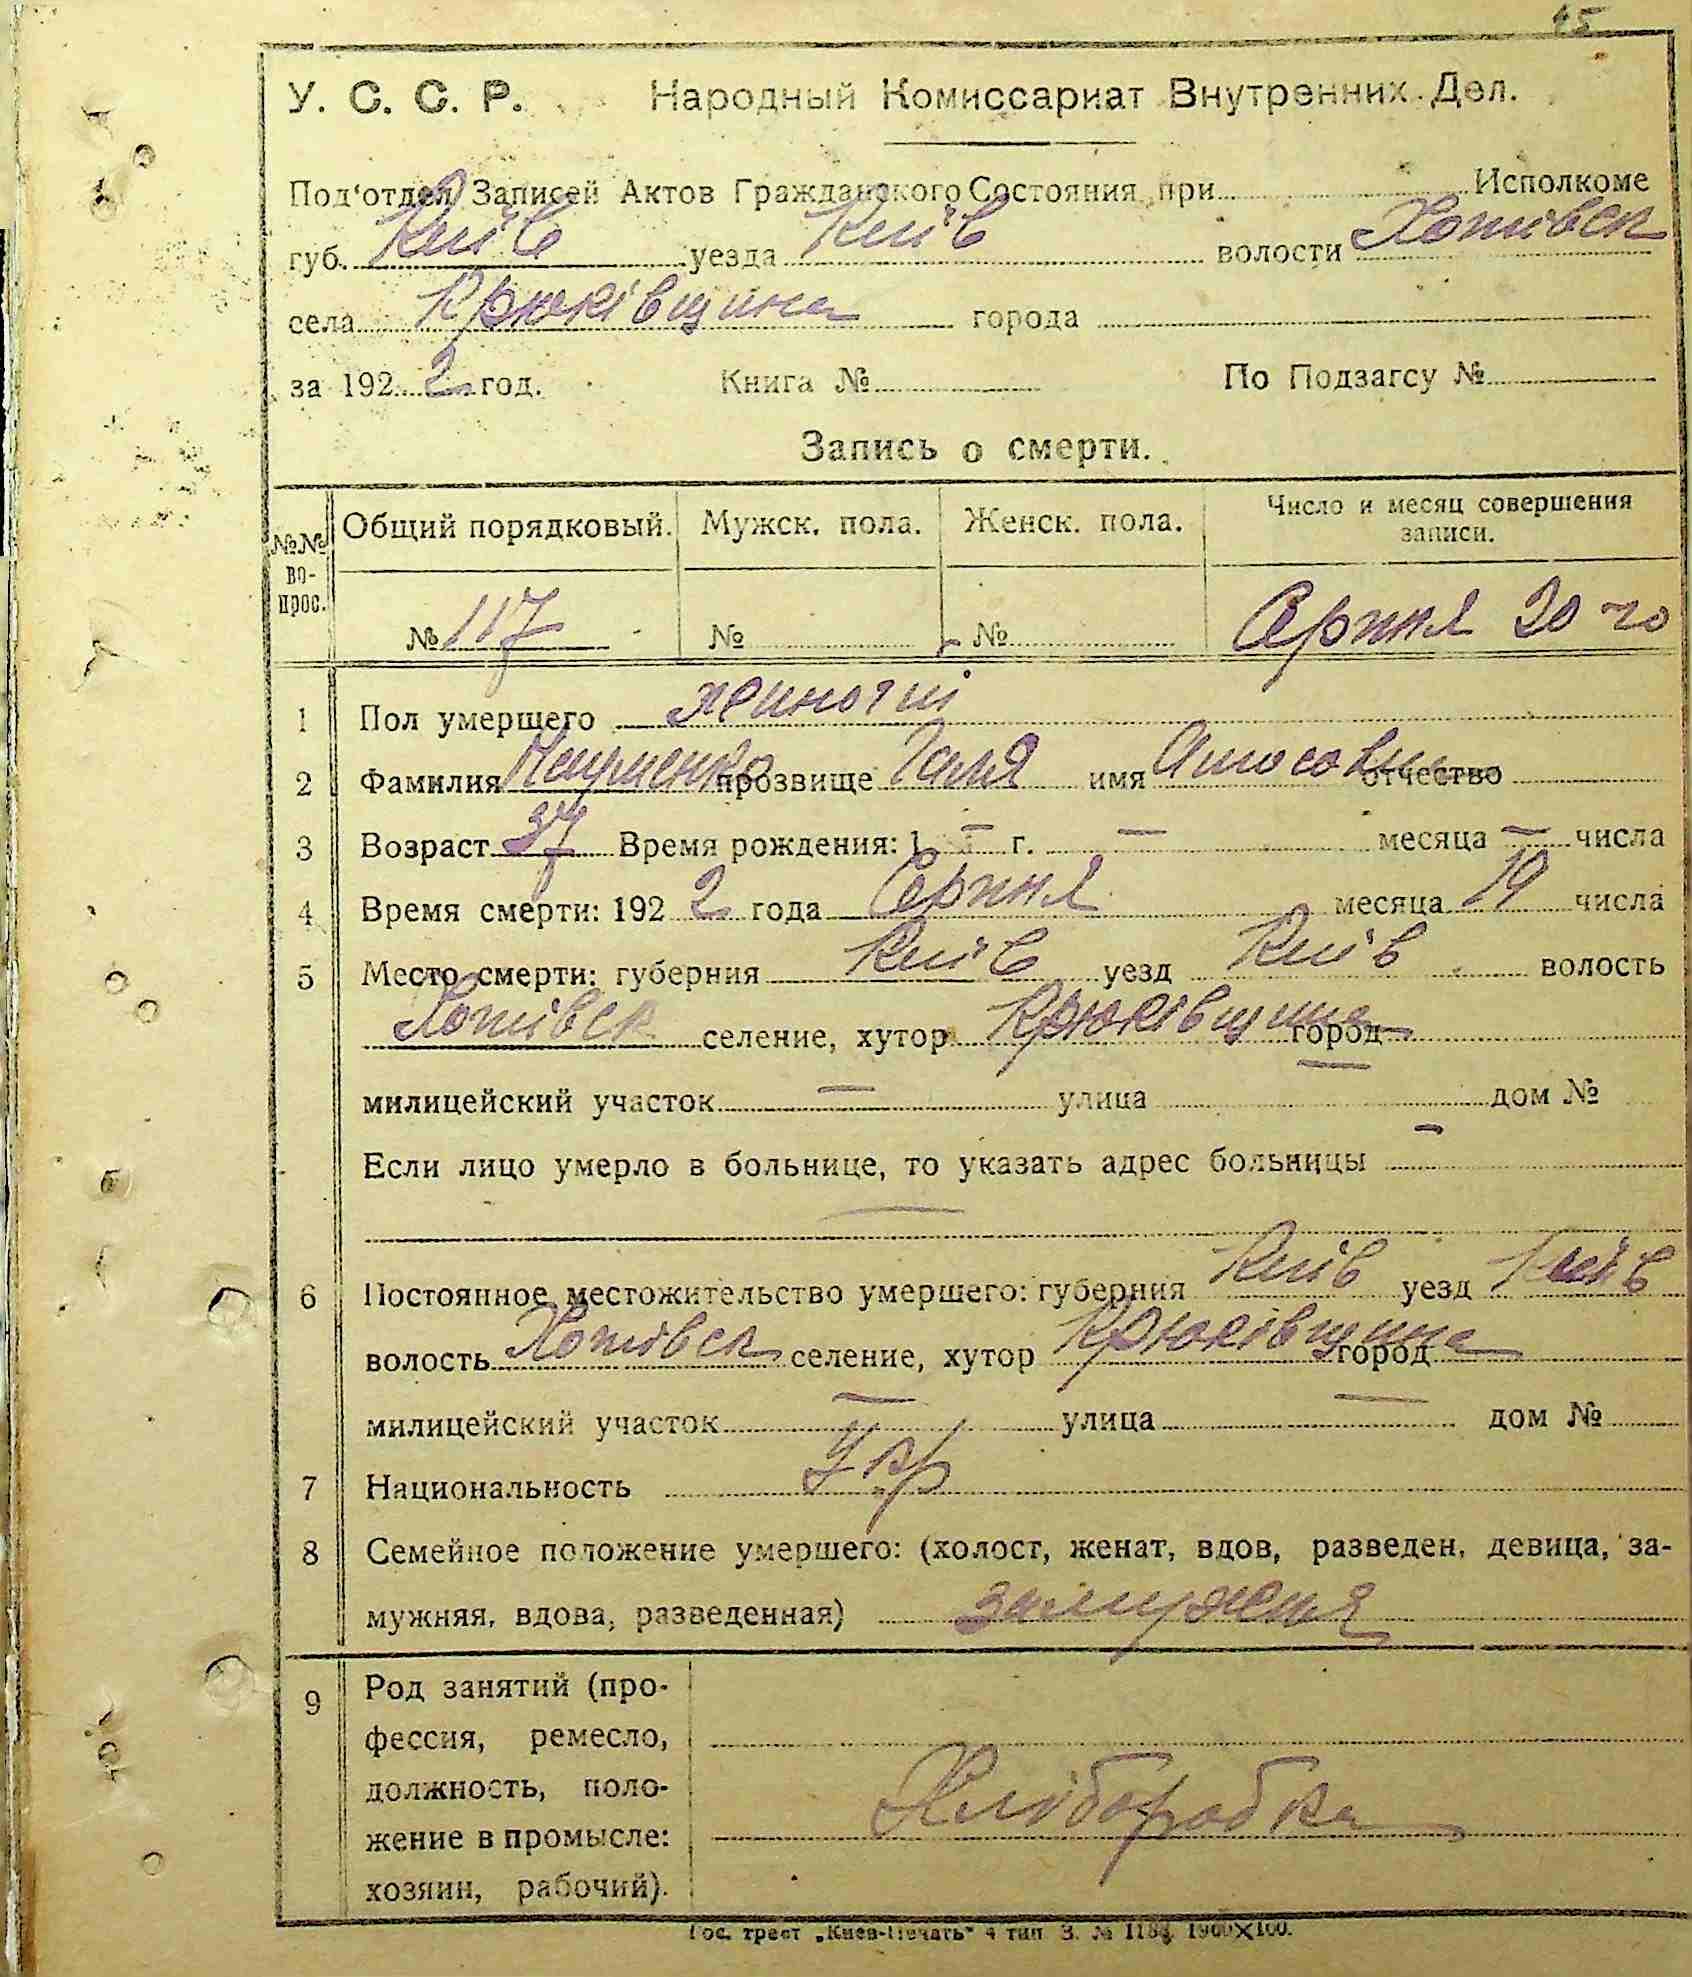 45
У. С. С. Р. Народный Комиссариат Внутренних Дел.
Под'отдел Записей Актов Гражданского Состояния при Исполкоме
губ. Київ уезда Київ волости Хотівск
села Крюківщина города
за 1922 год. Книга № По Подзагсу №
Запись о смерти.
№№ вопрос. Общий порядковый. Мужск. пола. Женск. пола. Число и месяц совершения записи.
№ 117 № № Серпня 20 го
1 Пол умершего жиночий
2 Фамилия Науменко прозвище Галя имя Амосовна отчество
3 Возраст 37 Время рождения: 1 – г. – месяца – числа
4 Время смерти: 1922 года Серпня месяца 19 числа
5 Место смерти: губерния Київ уезд Київ волость
Хотівск селение, хутор Крюківщина город
милицейский участок – улица – дом №
Если лицо умерло в больнице, то указать адрес больницы –
–
6 Постоянное местожительство умершего: губерния Київ уезд Київ
волость Хотівск селение, хутор Крюківщина город
милицейский участок – улица – дом №
7 Национальность Укр
8 Семейное положение умершего: (холост, женат, вдов, разведен, девица, за-
мужняя, вдова, разведенная) замужня
9 Род занятий (про-
фессия, ремесло,
должность, поло-
жение в промысле: Хліборобка
хозяин, рабочий).
Гос. трест „Киев-Печать" 4 тип З. № 1184. 1900×100.